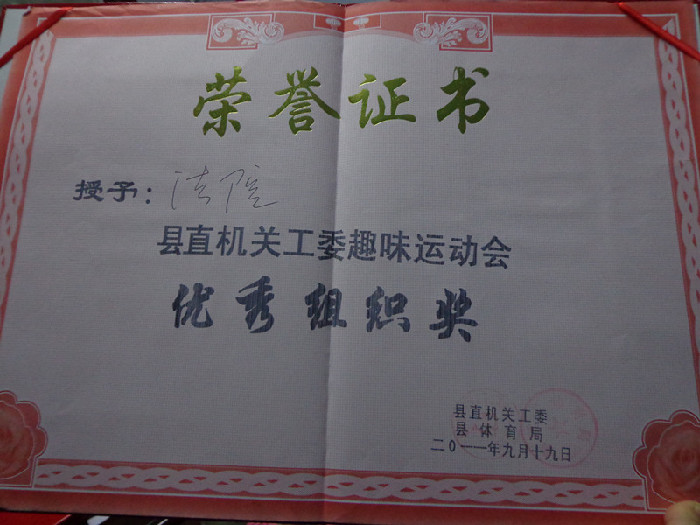 荣誉证书
授予：法院
县直机关工委趣味运动会
优秀组织奖
县直机关工委
县体育局
二〇一一年九月十九日